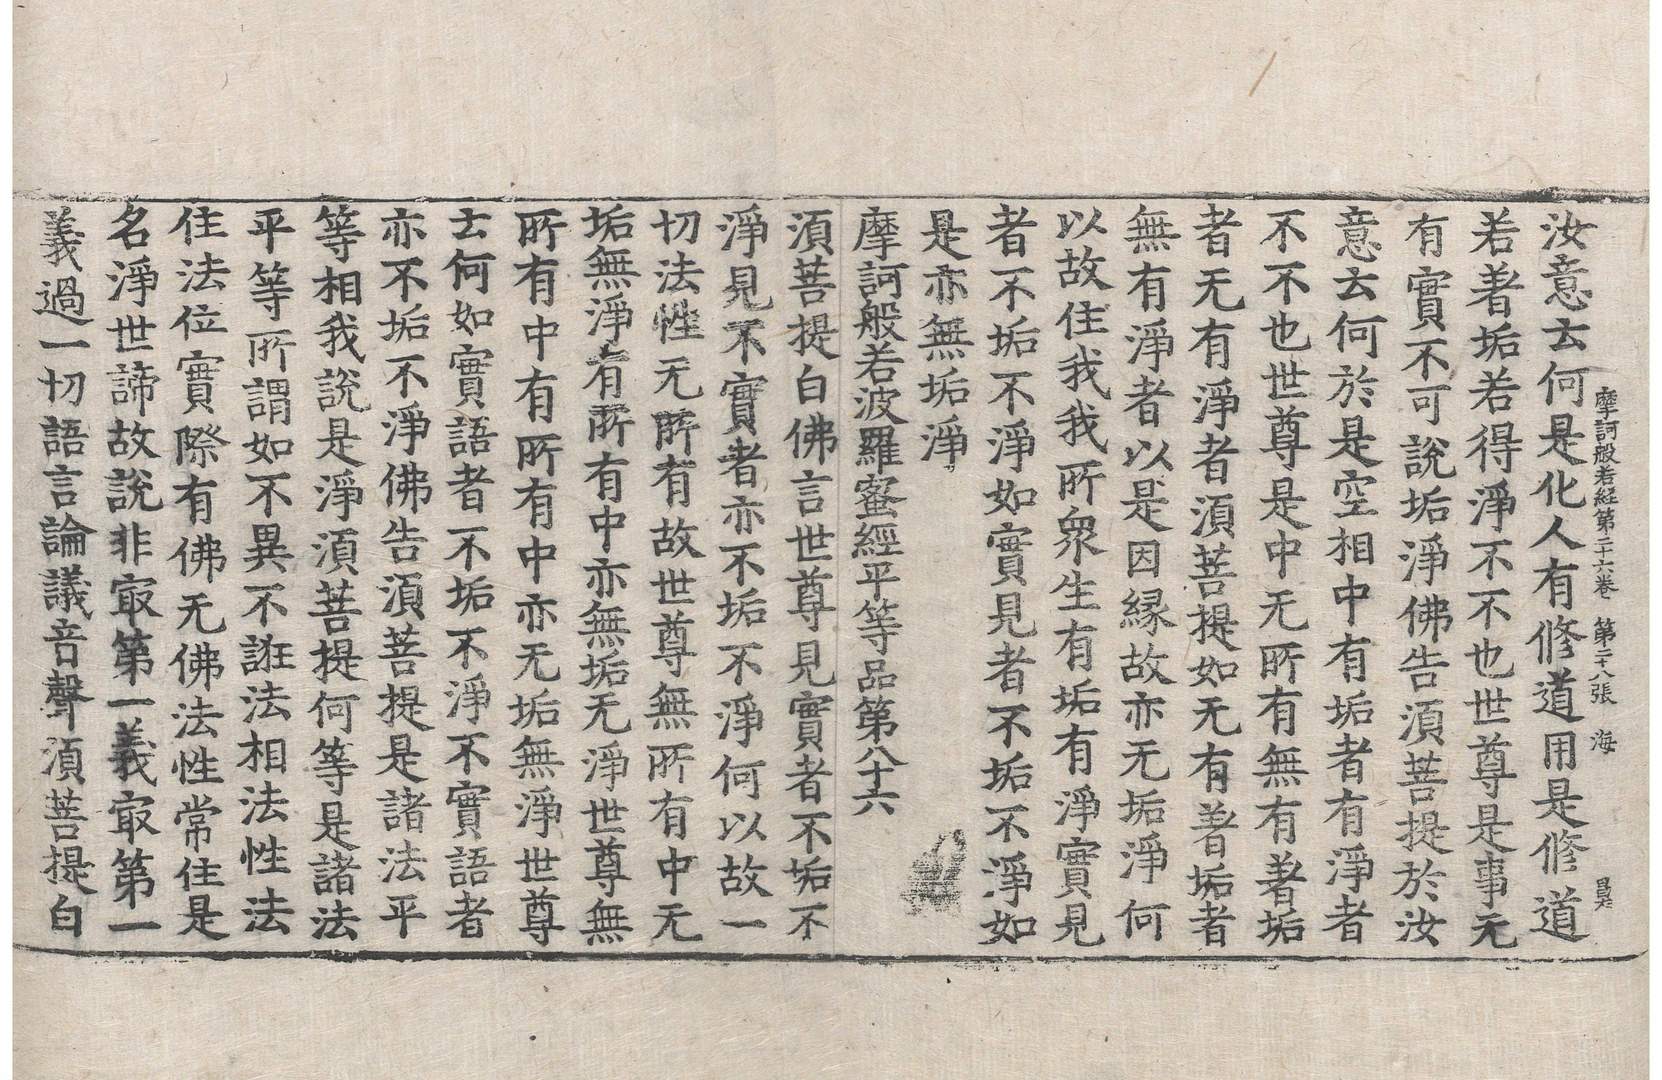 摩訶般若経第二十六卷 第二十八張 海
汝意去何是化人有修道用是修道
若著垢若得淨不不也世尊是事无
有實不可說垢淨佛告須菩提於汝
意去何於是空相中有垢者有淨者
不不也世尊是中无所有無有著垢
者无有淨者須菩提如无有著垢者
無有淨者以是因緣故亦无垢淨何
以故住我我所衆生有垢有淨實見
者不垢不淨如實見者不垢不淨如
是亦無垢淨
摩訶般若波羅蜜經平等品第八十六
須菩提白佛言世尊見實者不垢不
淨見不實者亦不垢不淨何以故一
切法性无所有故世尊無所有中无
垢無淨有所有中亦無垢无淨世尊無
所有中有所有中亦无垢無淨世尊
去何如實語者不垢不淨不實語者
亦不垢不淨佛告須菩提是諸法平
等相我說是淨須菩提何等是諸法
平等所謂如不異不誑法相法性法
住法位實際有佛无佛法性常住是
名淨世諦故說非冣第一義冣第一
義過一切語言論議音聲須菩提白